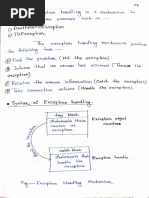 exception handling is a mechanism to
such as
ArithmeticException
IOException
The exception handling mechanism perform
the following task
Find the problem (Hit the exception)
Inform that an error has occurred (Throw the
exception)
Receive the error information (Catch the exception)
Take corrective actions (Handle the exception)
Syntax of Exception handling.
try block
Statement that
causes an
exception
Exception object
creator
catch block
Statement that
handle the
exception
Exception handler
Fig - Exception Handling Mechanism.